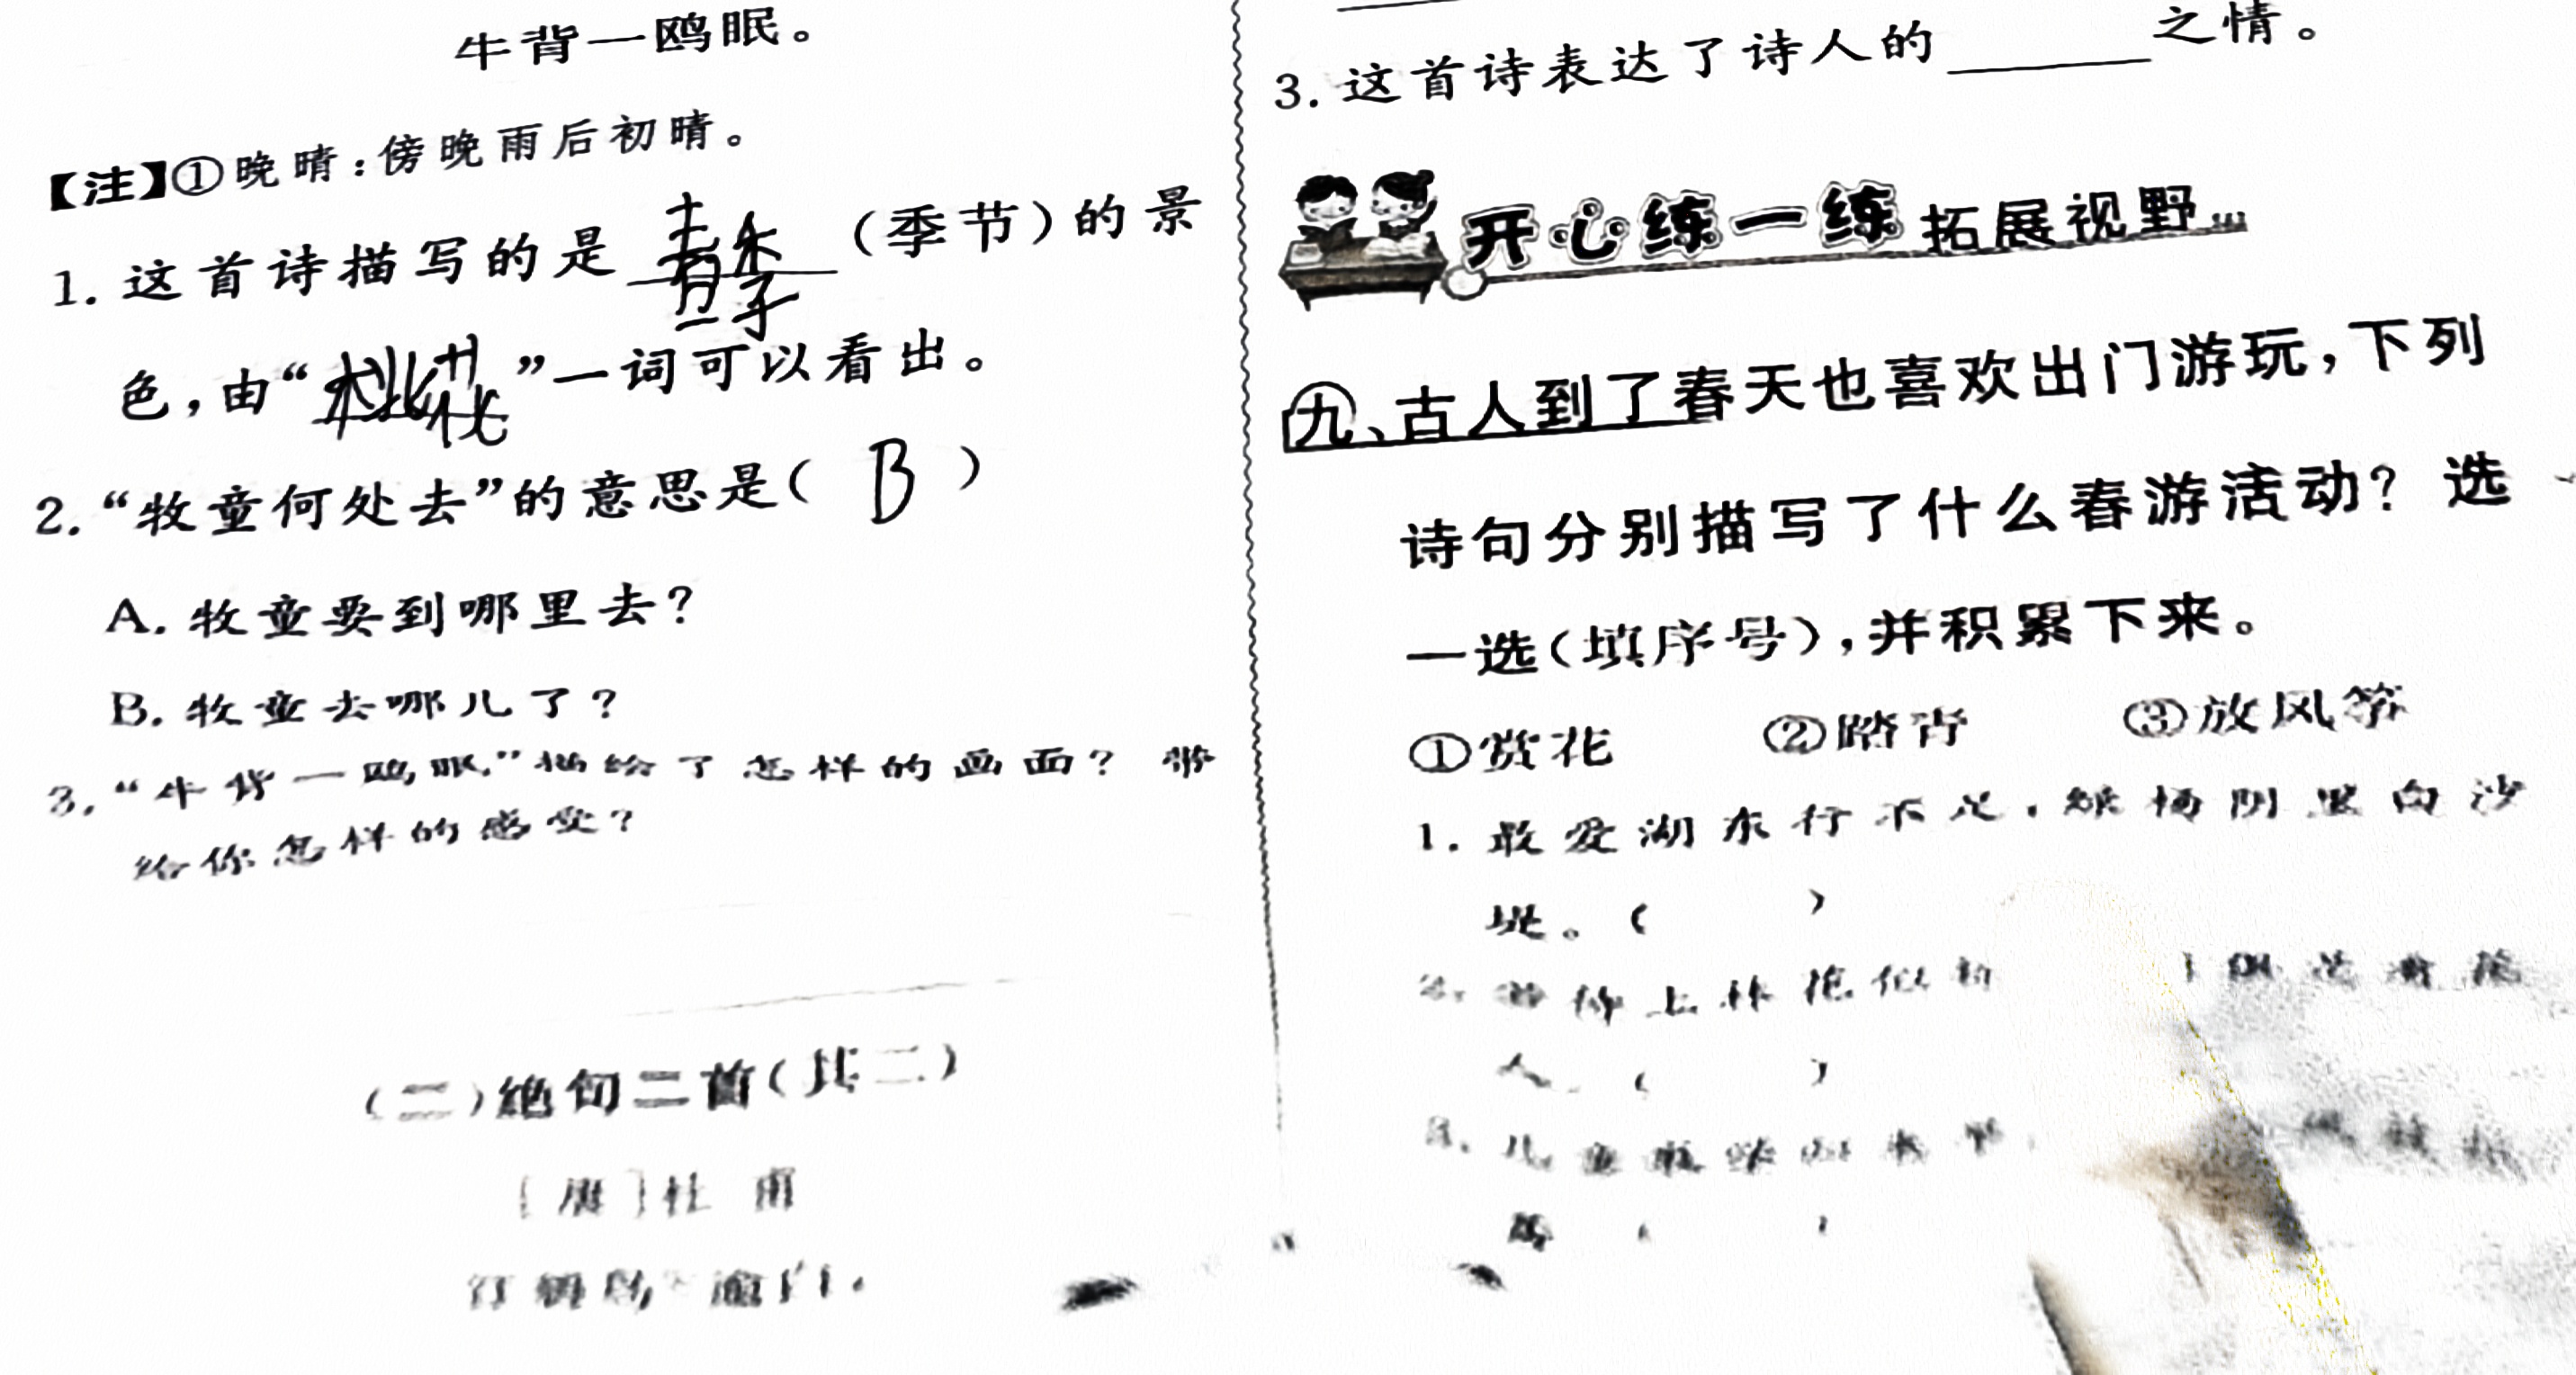 牛背一鸥眠。
【注】①晚晴:傍晚雨后初晴。
1. 这首诗描写的是 春季 (季节)的景
色,由“桃花”一词可以看出。
2. “牧童何处去”的意思是( B )
A. 牧童要到哪里去?
B. 牧童去哪儿了?
3. “牛背一鸥眠”描绘了怎样的画面? 带
给你怎样的感受?
(二)绝句二首(其二)
[唐]杜 甫
3. 这首诗表达了诗人的______之情。
开心练一练 拓展视野…
九、古人到了春天也喜欢出门游玩,下列
诗句分别描写了什么春游活动? 选
一选(填序号),并积累下来。
①赏花 ②踏青 ③放风筝
1. 最爱湖东行不足,绿杨阴里白沙
堤。( )
2. 上林花似
人。( )
3. 儿童
( )